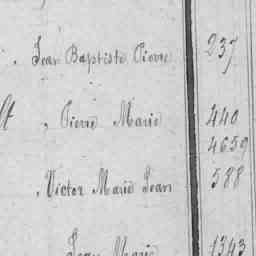 , Jean Baptiste Pierre 237
, Pierre Marie 440
4659
, Victor Marie Jean 588
Jean Marie 1343